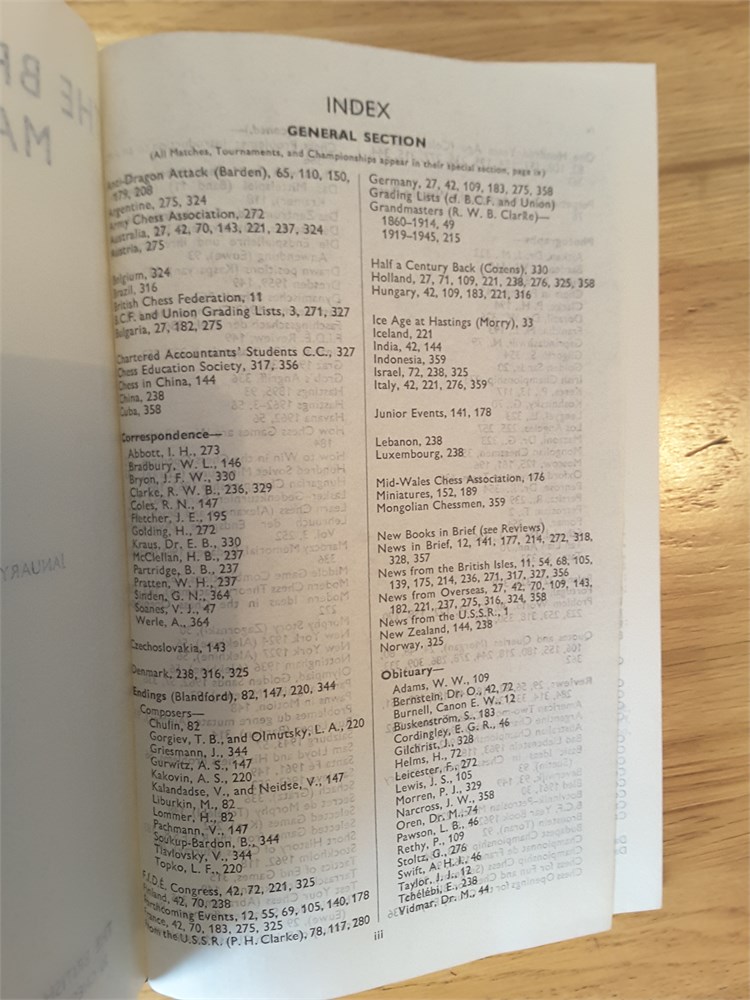 HE BR
MA
JANUARY
INDEX
GENERAL SECTION
(All Matches, Tournaments, and Championships appear in their special section, page ix)
nti-Dragon Attack (Barden), 65, 110, 150,
179, 208
Argentine, 275, 324
Army Chess Association, 272
Australia, 27, 42, 70, 143, 221, 237, 324
Austria, 275
Belgium, 324
Brazil, 316
British Chess Federation, 11
B.C.F. and Union Grading Lists, 3, 271, 327
Bulgaria, 27, 182, 275
Chartered Accountants' Students C.C., 327
Chess Education Society, 317, 356
Chess in China, 144
China, 238
Cuba, 358
Correspondence—
Abbott, I. H., 273
Bradbury, W. L., 146
Bryon, J. F. W., 330
Clarke, R. W. B., 236, 329
Coles, R. N., 147
Fletcher, J. E., 195
Golding, H., 272
Kraus, Dr. E. B., 330
McClellan, H. B., 237
Partridge, B. B., 237
Pratten, W. H., 237
Sinden, G. N., 364
Soanes, V. J., 47
Werle, A., 364
Czechoslovakia, 143
Denmark, 238, 316, 325
Endings (Blandford), 82, 147, 220, 344
Composers—
Chufin, 82
Gorgiev, T. B., and Olmutsky, L. A., 220
Griesmann, J., 344
Gurwitz, A. S., 147
Kakovin, A. S., 220
Kalandadse, V., and Neidse, V., 147
Liburkin, M., 82
Lommer, H., 82
Pachmann, V., 147
Soukup-Bardon, B., 344
Tiavlovsky, V., 344
Topko, L. F., 220
F.I.D.E. Congress, 42, 72, 221, 325
Finland, 42, 70, 238
Forthcoming Events, 12, 55, 69, 105, 140, 178
France, 42, 70, 183, 275, 325
From the U.S.S.R. (P. H. Clarke), 78, 117, 280
Germany, 27, 42, 109, 183, 275, 358
Grading Lists (cf. B.C.F. and Union)
Grandmasters (R. W. B. Clarke)—
1860–1914, 49
1919–1945, 215
Half a Century Back (Cozens), 330
Holland, 27, 71, 109, 221, 238, 276, 325, 358
Hungary, 42, 109, 183, 221, 316
Ice Age at Hastings (Morry), 33
Iceland, 221
India, 42, 144
Indonesia, 359
Israel, 72, 238, 325
Italy, 42, 221, 276, 359
Junior Events, 141, 178
Lebanon, 238
Luxembourg, 238
Mid-Wales Chess Association, 176
Miniatures, 152, 189
Mongolian Chessmen, 359
New Books in Brief (see Reviews)
News in Brief, 12, 141, 177, 214, 272, 318,
328, 357
News from the British Isles, 11, 54, 68, 105,
139, 175, 214, 236, 271, 317, 327, 356
News from Overseas, 27, 42, 70, 109, 143,
182, 221, 237, 275, 316, 324, 358
News from the U.S.S.R., 1
New Zealand, 144, 238
Norway, 325
Obituary—
Adams, W. W., 109
Bernstein, Dr. O., 42, 72
Burnell, Canon E. W., 12
Buskenström, S., 183
Cordingley, E. G. R., 46
Gilchrist, J., 328
Helms, H., 72
Leicester, F., 272
Lewis, J. S., 105
Morren, P. J., 329
Narcross, J. W., 358
Oren, Dr. M., 74
Pawson, L. B., 46
Rethy, P., 109
Stoltz, G., 276
Swift, A. H. J., 46
Taylor, J. J., 12
Tchélébi, E., 238
Vidmar, Dr. M., 44
iii